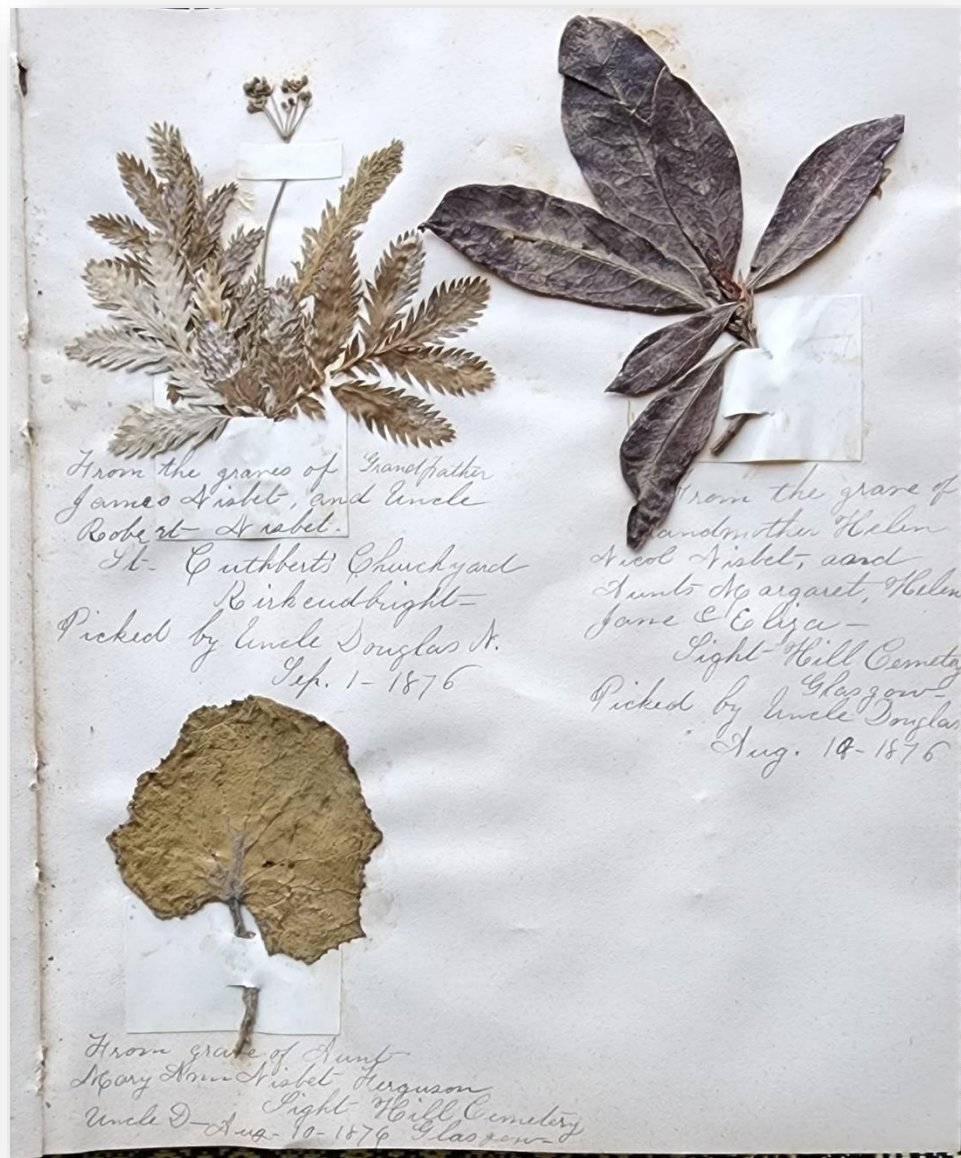 From the graves of Grandfather
James Nisbet, and Uncle
Robert Nisbet.
St- Cuthberts Churchyard
Kirkcudbright-
Picked by Uncle Douglas N.
Sep. 1- 1876
From the grave of
andmother Helen
Nicol Nisbet, and
Aunts Margaret, Helen
Jane & Eliza-
Sight Hill Cemete
Glasgow-
Picked by Uncle Douglas
Aug. 10-1876
From grave of Aunt
Mary Ann Nisbet Ferguson
Sight Hill Cemetery
Uncle D- Aug- 10- 1876 Glasgow-